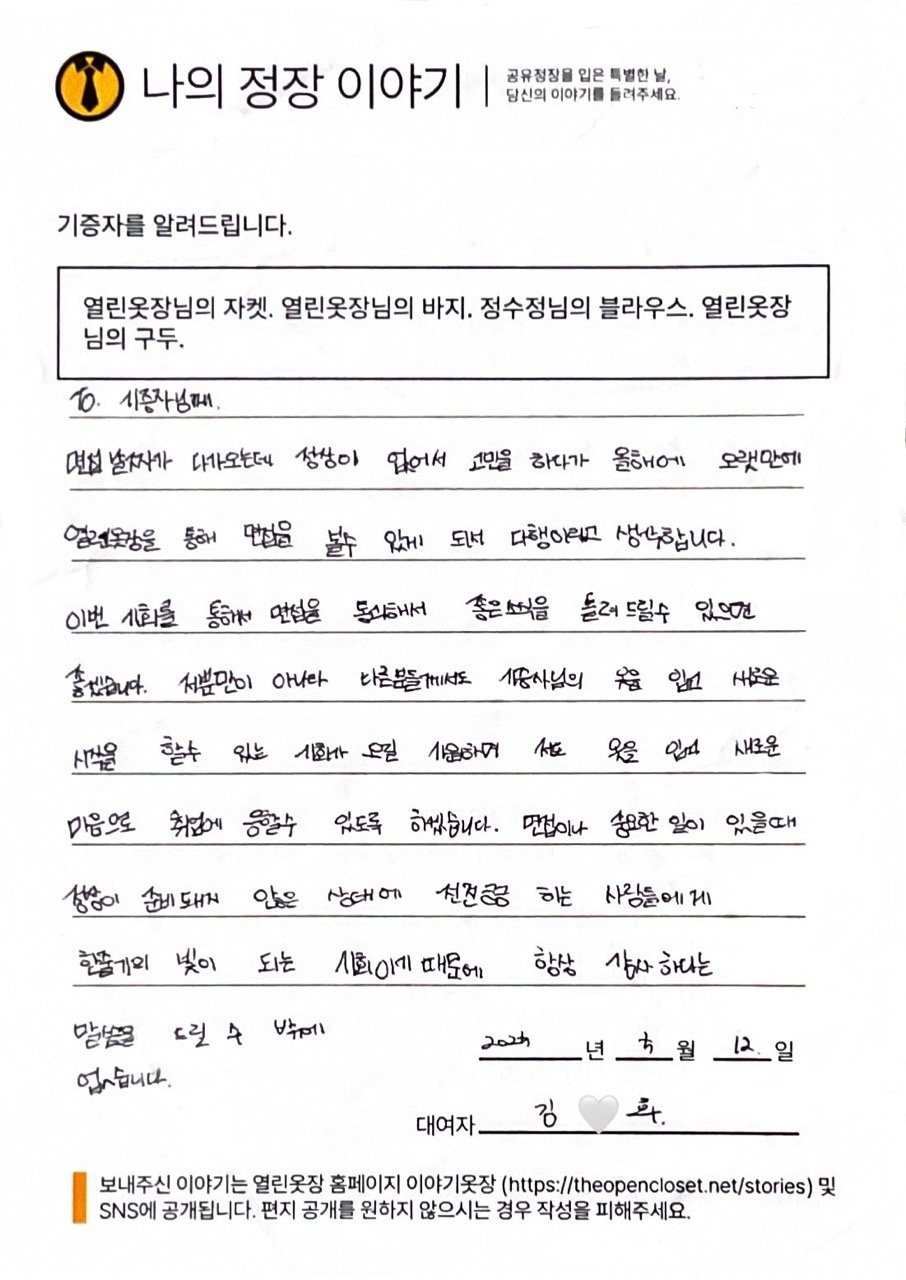 나의 정장 이야기
공유정장을 입은 특별한 날,
당신의 이야기를 들려주세요.
기증자를 알려드립니다.
열린옷장님의 자켓. 열린옷장님의 바지. 정수정님의 블라우스. 열린옷장
님의 구두.
To. 기증자님께.
면접 날짜가 다가오는데 정장이 없어서 고민을 하다가 올해에 오랫만에
열린옷장을 통해 면접을 볼수 있게 되서 다행이라고 생각합니다.
이번 기회를 통해서 면접을 통과해서 좋은소식을 들려 드릴수 있으면
좋겠습니다. 저뿐만이 아니라 다른분들께서도 기증자님의 옷을 입고 새로운
시작을 할수 있는 기회가 오길 기원하며 저도 옷을 입고 새로운
마음으로 취업에 응할수 있도록 하겠습니다. 면접이나 중요한 일이 있을때
정장이 준비돼지 않은 상태에 하는 사람들에게
한줄기의 빛이 되는 기회이게 때문에 항상 감사하다는
말씀을 드릴 수 밖에
없습니다.
년 월 12. 일
대여자 김 화.
보내주신 이야기는 열린옷장 홈페이지 이야기옷장 (https://theopencloset.net/stories) 및
SNS에 공개됩니다. 편지 공개를 원하지 않으시는 경우 작성을 피해주세요.